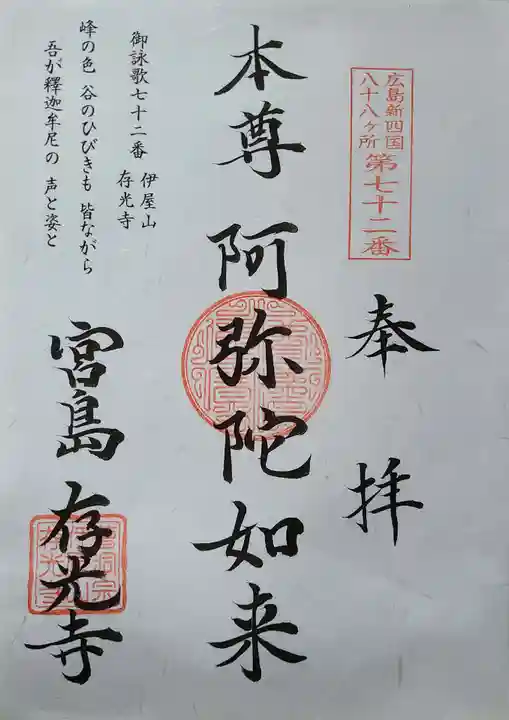 広島新四国
八十八ヶ所 第七十二番
奉拝
本尊 阿弥陀如来
御詠歌七十二番 伊屋山
存光寺
峰の色 谷のひびきも 皆ながら
吾が釋迦牟尼の 声と姿と
宮島 存光寺